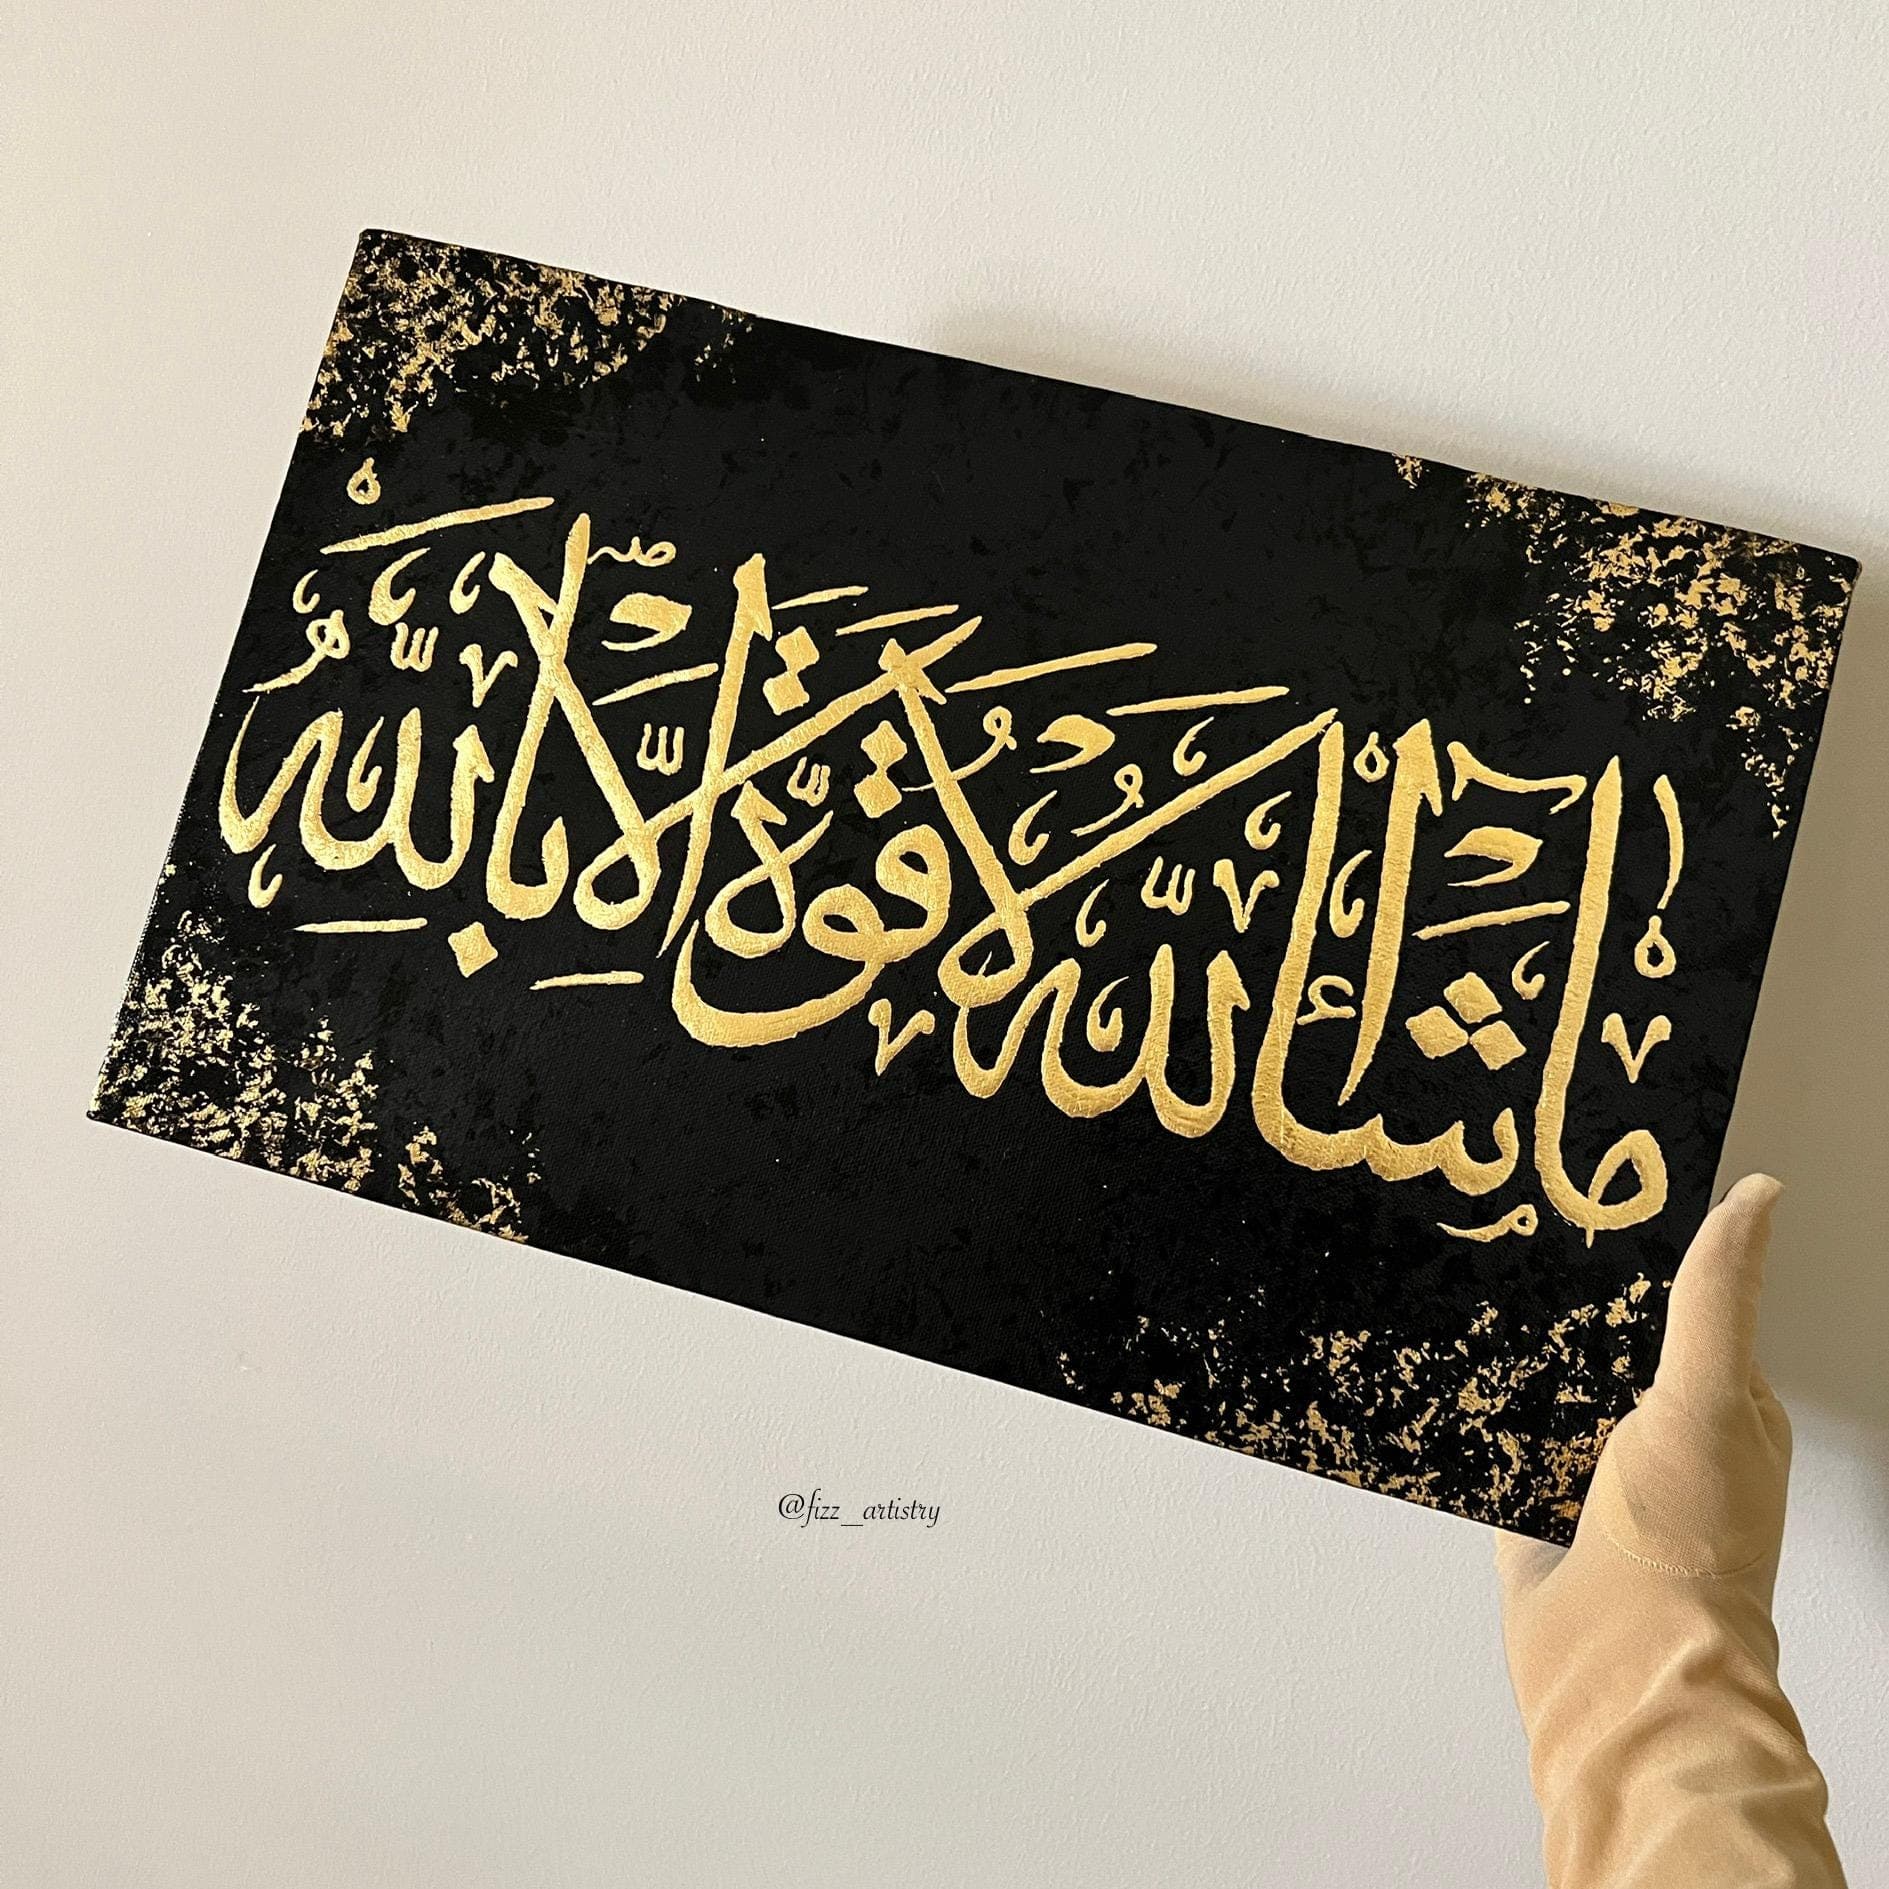 ما شاء الله لا قوة إلا بالله
@fizz_artistry